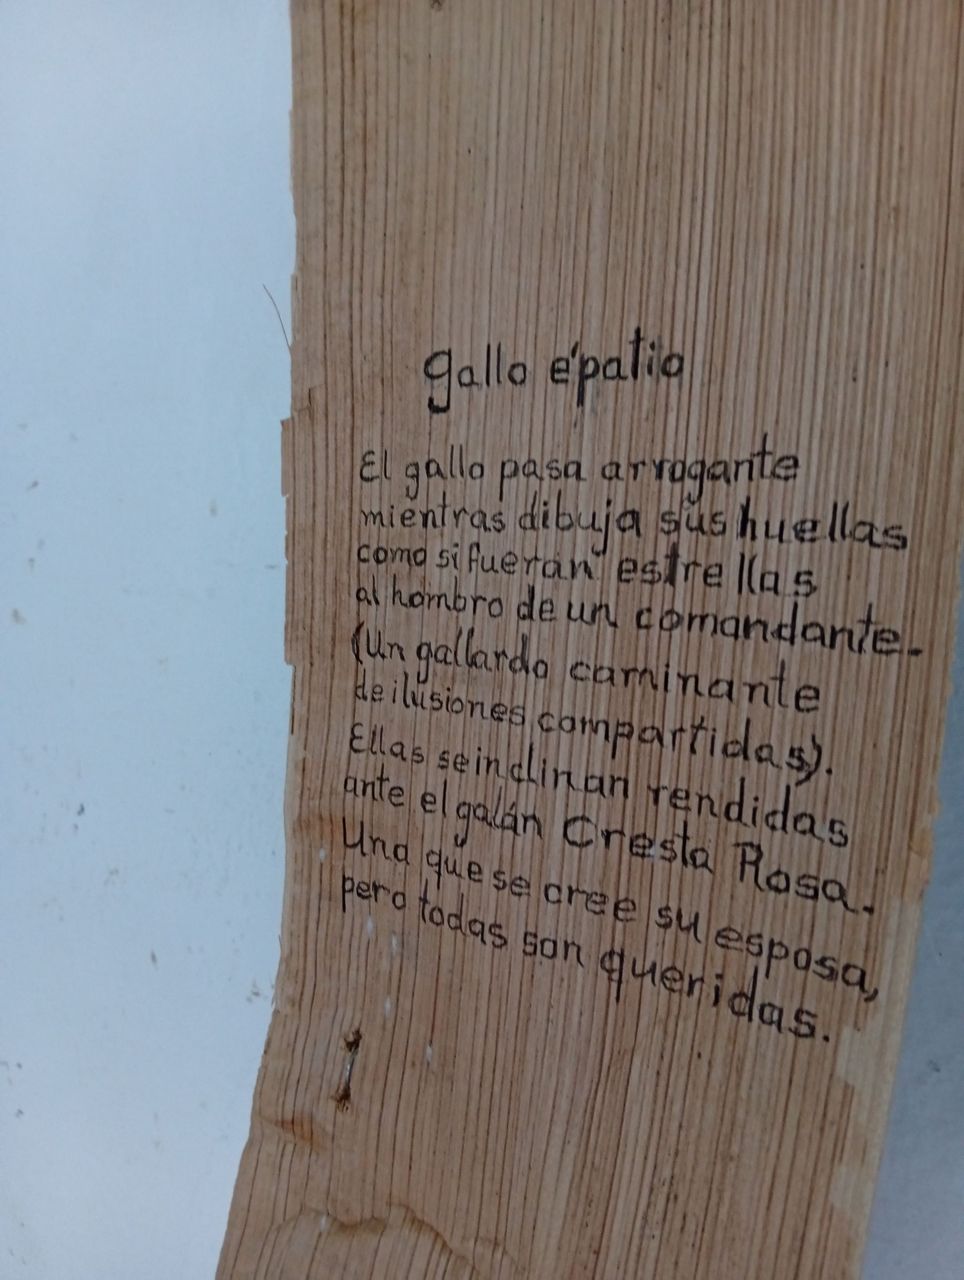 gallo e'patio
El gallo pasa arrogante
mientras dibuja sus huellas
como si fueran estrellas
al hombro de un comandante.
(Un gallardo caminante
de ilusiones compartidas).
Ellas se inclinan rendidas
ante el galán Cresta Rosa.
Una que se cree su esposa,
pero todas son queridas.